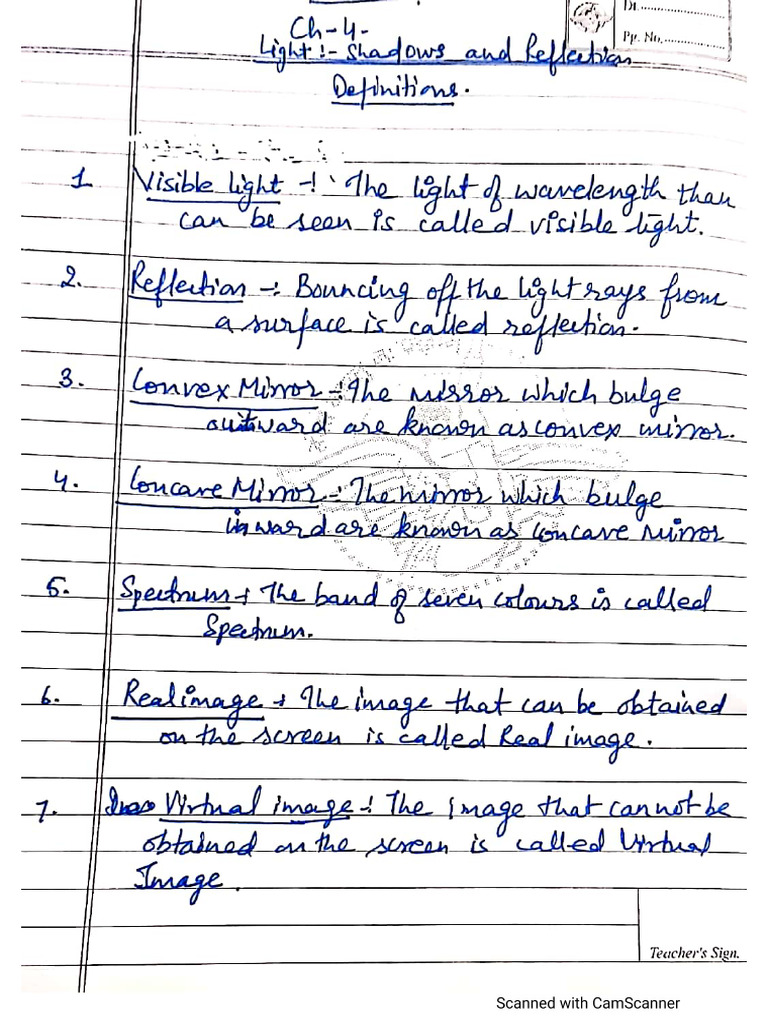 Dt.
Pg. No.
Ch-4-
Light :- Shadows and Reflection
Definitions.
1 Visible light -: The light of wavelength than
can be seen is called visible light.
2. Reflection -: Bouncing off the light rays from
a surface is called reflection.
3. Convex Mirror -: The mirror which bulge
outward are known as convex mirror.
4. Concave Mirror -: The mirror which bulge
inward are known as concave mirror
5. Spectrum : The band of seven colours is called
Spectrum.
6. Real image : The image that can be obtained
on the screen is called Real image.
7. Virtual image : The image that cannot be
obtained on the screen is called Virtual
Image.
Teacher's Sign.
Scanned with CamScanner